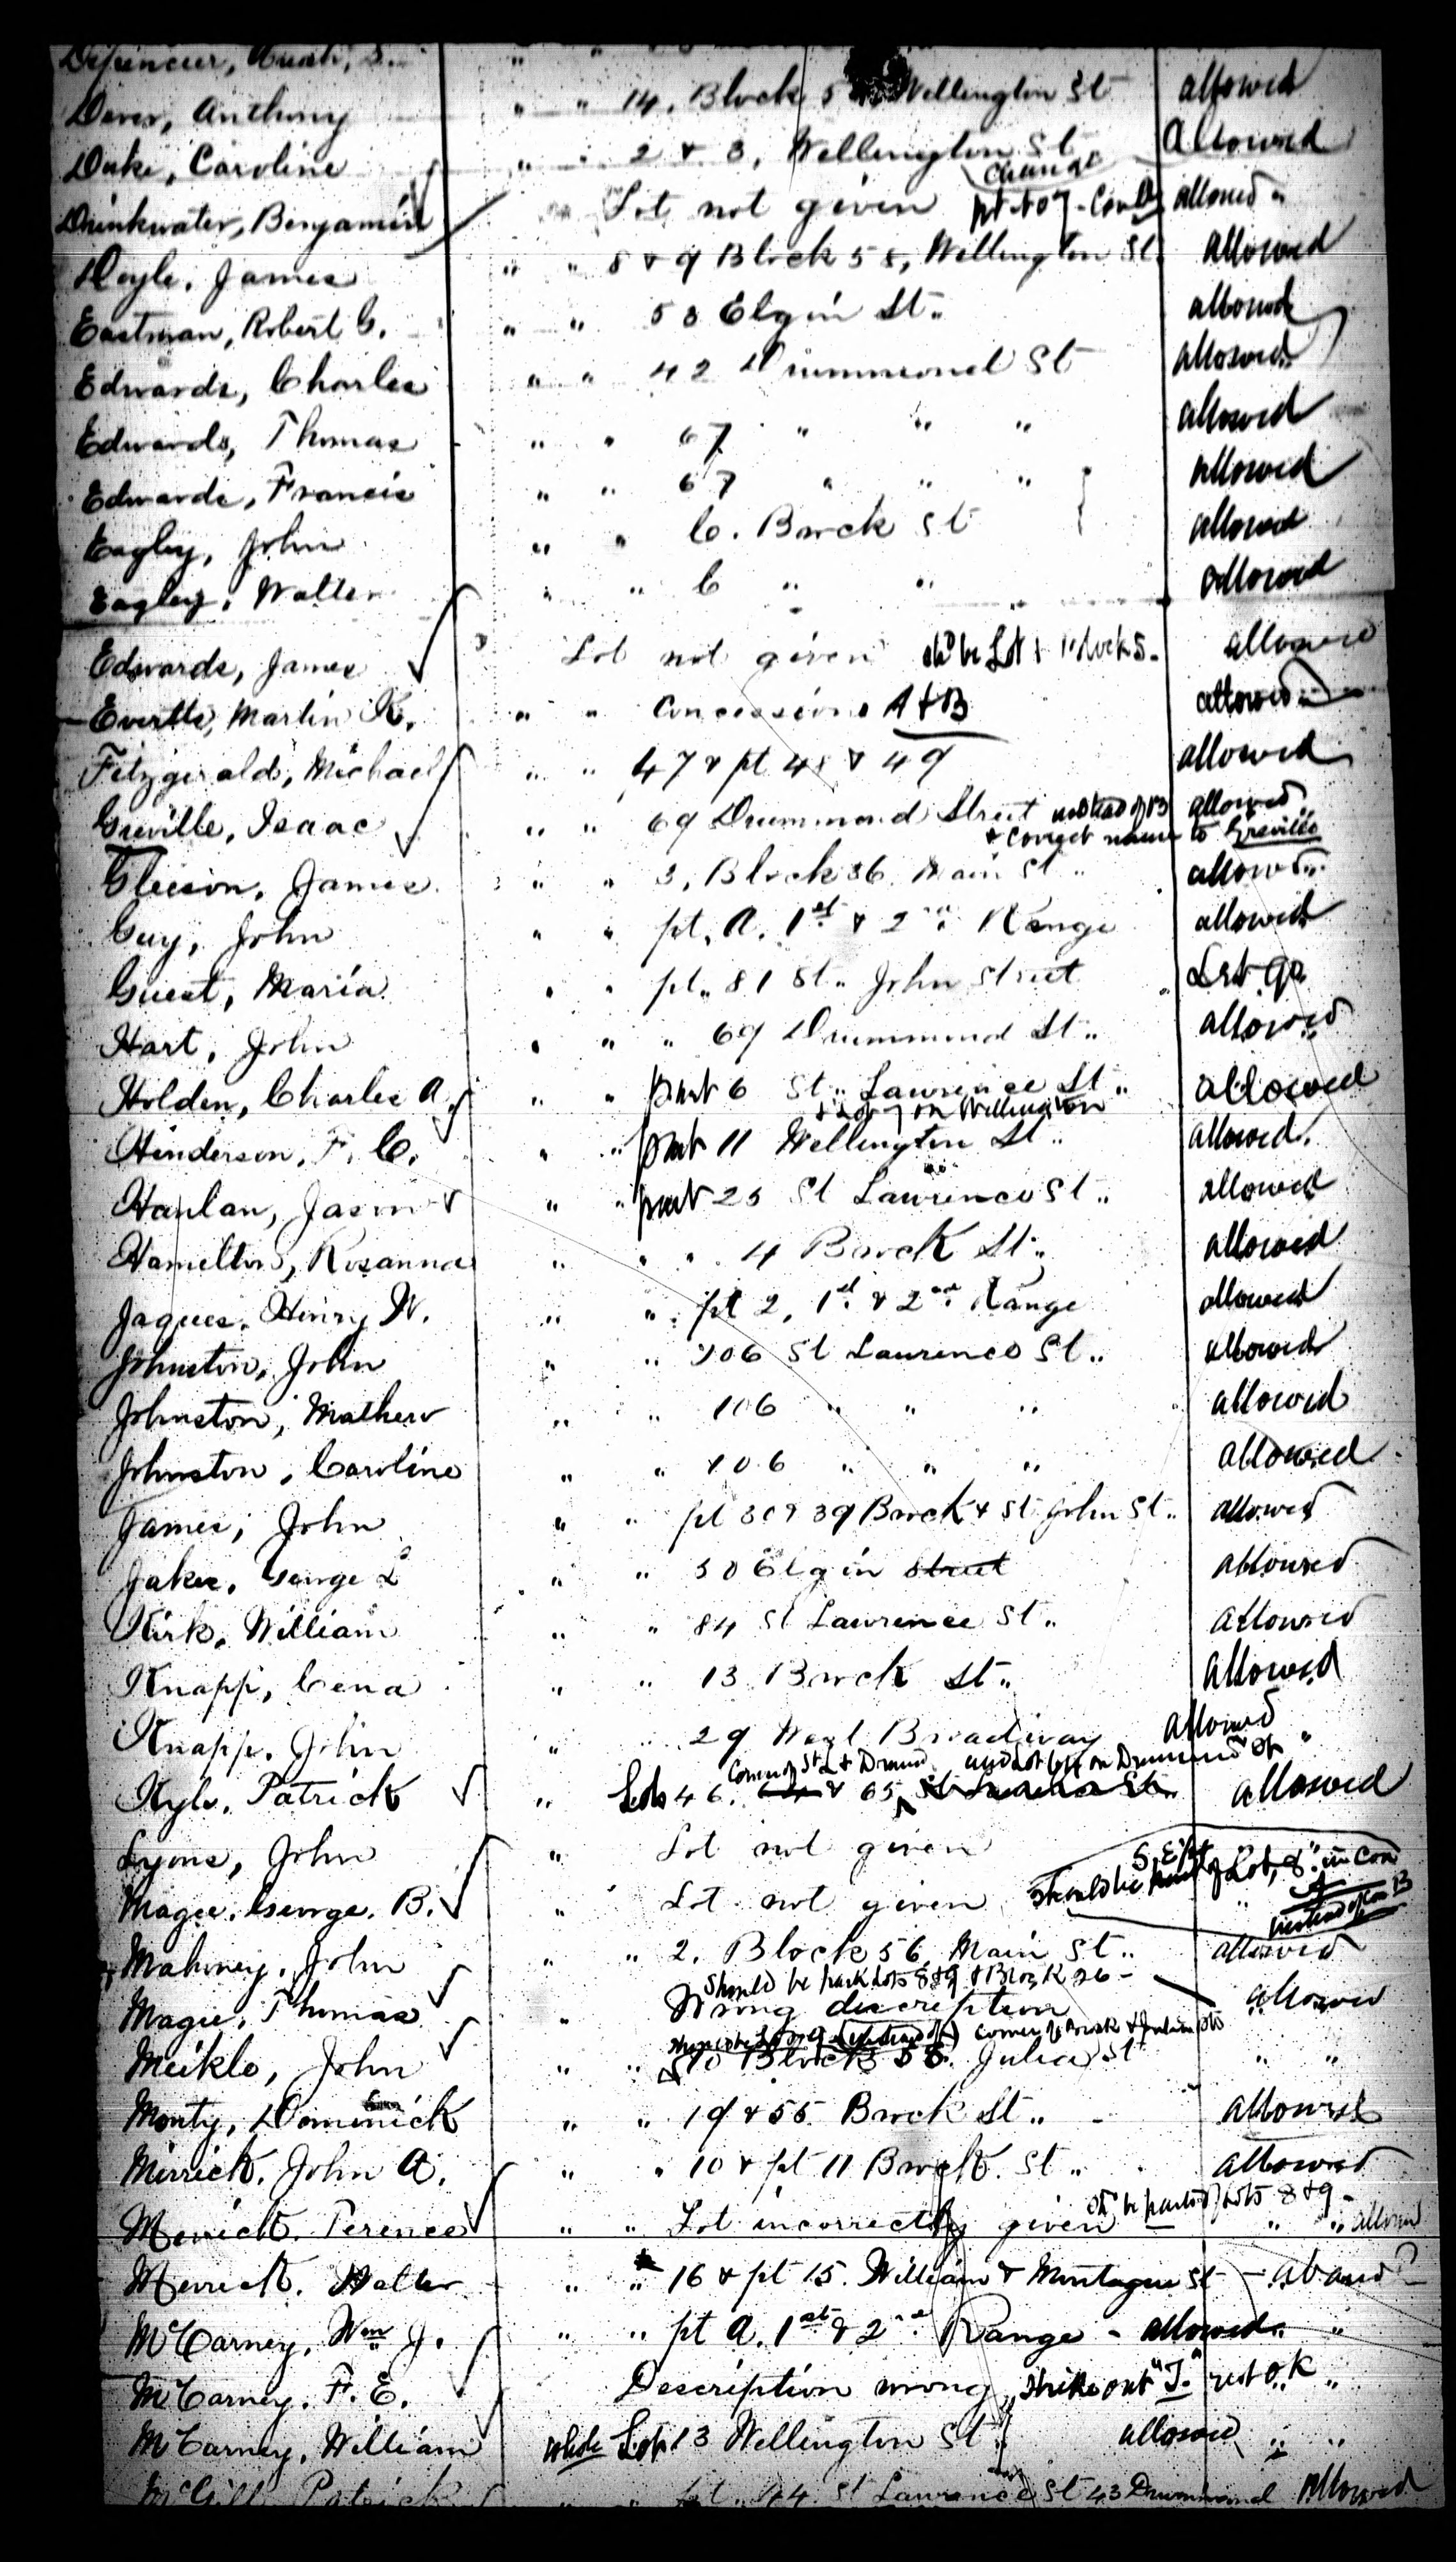 Dever, Anthony " " 14, Block 5 Wellington St allowed
Duke, Caroline " " 2 & 3, Wellington St Allowed
change
Drinkwater, Benjamin Lot not given pt to 7 - Con allowed "
Doyle, James " " 8 & 9 Block 58, Wellington St. allowed
Eastman, Robert G. " " 58 Elgin St. allowed
Edwards, Charles " " 42 Drummond St allowed
Edwards, Thomas " " 67 " " " allowed
Edwards, Francis " " 67 " " " allowed
Eagley, John " " C. Brock St allowed
Eagley, Walter " " C " " allowed
Edwards, James Lot not given shd be Lot 1 Block 5. allowed
Evertts, Martin K. " " Concessions A & B allowed
Fitzgerald, Michael " " 47 & pt 48 & 49 allowed
Greville, Isaac " " 69 Drummond Street instead of 13 allowed
& Correct name to Greville
Gleeson, James " " 3, Block 36 Main St " allowed
Guy, John " " pt. A. 1st & 2nd Range allowed
Guest, Maria " " pt. 81 St. John Street
Hart, John " " " 69 Drummond St. allowed
Holden, Charles A. " " part 6 St. Lawrence St. allowed
& Lot 7 on Wellington
Henderson, F. C. " " part 11 Wellington St. allowed.
Hanlan, Jason " " part 25 St Lawrence St. allowed
Hamilton, Rosanna " " " 4 Brock St. allowed
Jaques, Henry W. " " pt 2, 1st & 2nd Range allowed
Johnston, John " " 106 St Lawrence St. allowed
Johnston, Mathew " " 106 " " " allowed
Johnston, Caroline " " 106 " " " allowed
James, John " " pt 30 & 39 Brock & St John St. allowed
Jakes, George L " " 50 Elgin Street allowed
Kirk, William " " 84 St Lawrence St. allowed
Knapp, Cena " " 13 Brock St. allowed
Knapp, John " " 29 West Broadway allowed "
Corner of St L & Drumd. and Lot 64 on Drummond St
Kyle, Patrick " Lots 46, 64 & 65 St Lawrence St. allowed
Lyons, John " Lot not given
S. E. pt
Magee, George. B. " Lot not given should be part of Lot 8 in Con A
instead of Con B
Mahoney, John " " 2. Block 56 Main St. allowed
should be park Lots 8 & 9 & Block 26 -
Magee, Thomas " Wrong description allowed
Corner of Brock & Julia Sts
Meikle, John " " 10 Block 56. Julia St " "
Monty, Dominick " " 19 & 55 Brock St. - allowed
Merrick, John A. " " 10 & pt 11 Brock St " allowed
shd be part of Lots 8 & 9 -
Merrick, Terence " " Lot incorrectly given " " allowed
Merrick, Walter " " 16 & pt 15. William & Montague St
McCarney, Wm J. " " pt A. 1st & 2nd Range - allowed. "
McCarney, F. E. Description wrong, strike out "J." rest O.K "
McCarney, William whole Lot 13 Wellington St. allowed " "
McGill, Patrick " " Lot 44 St Lawrence St 43 Drummond allowed